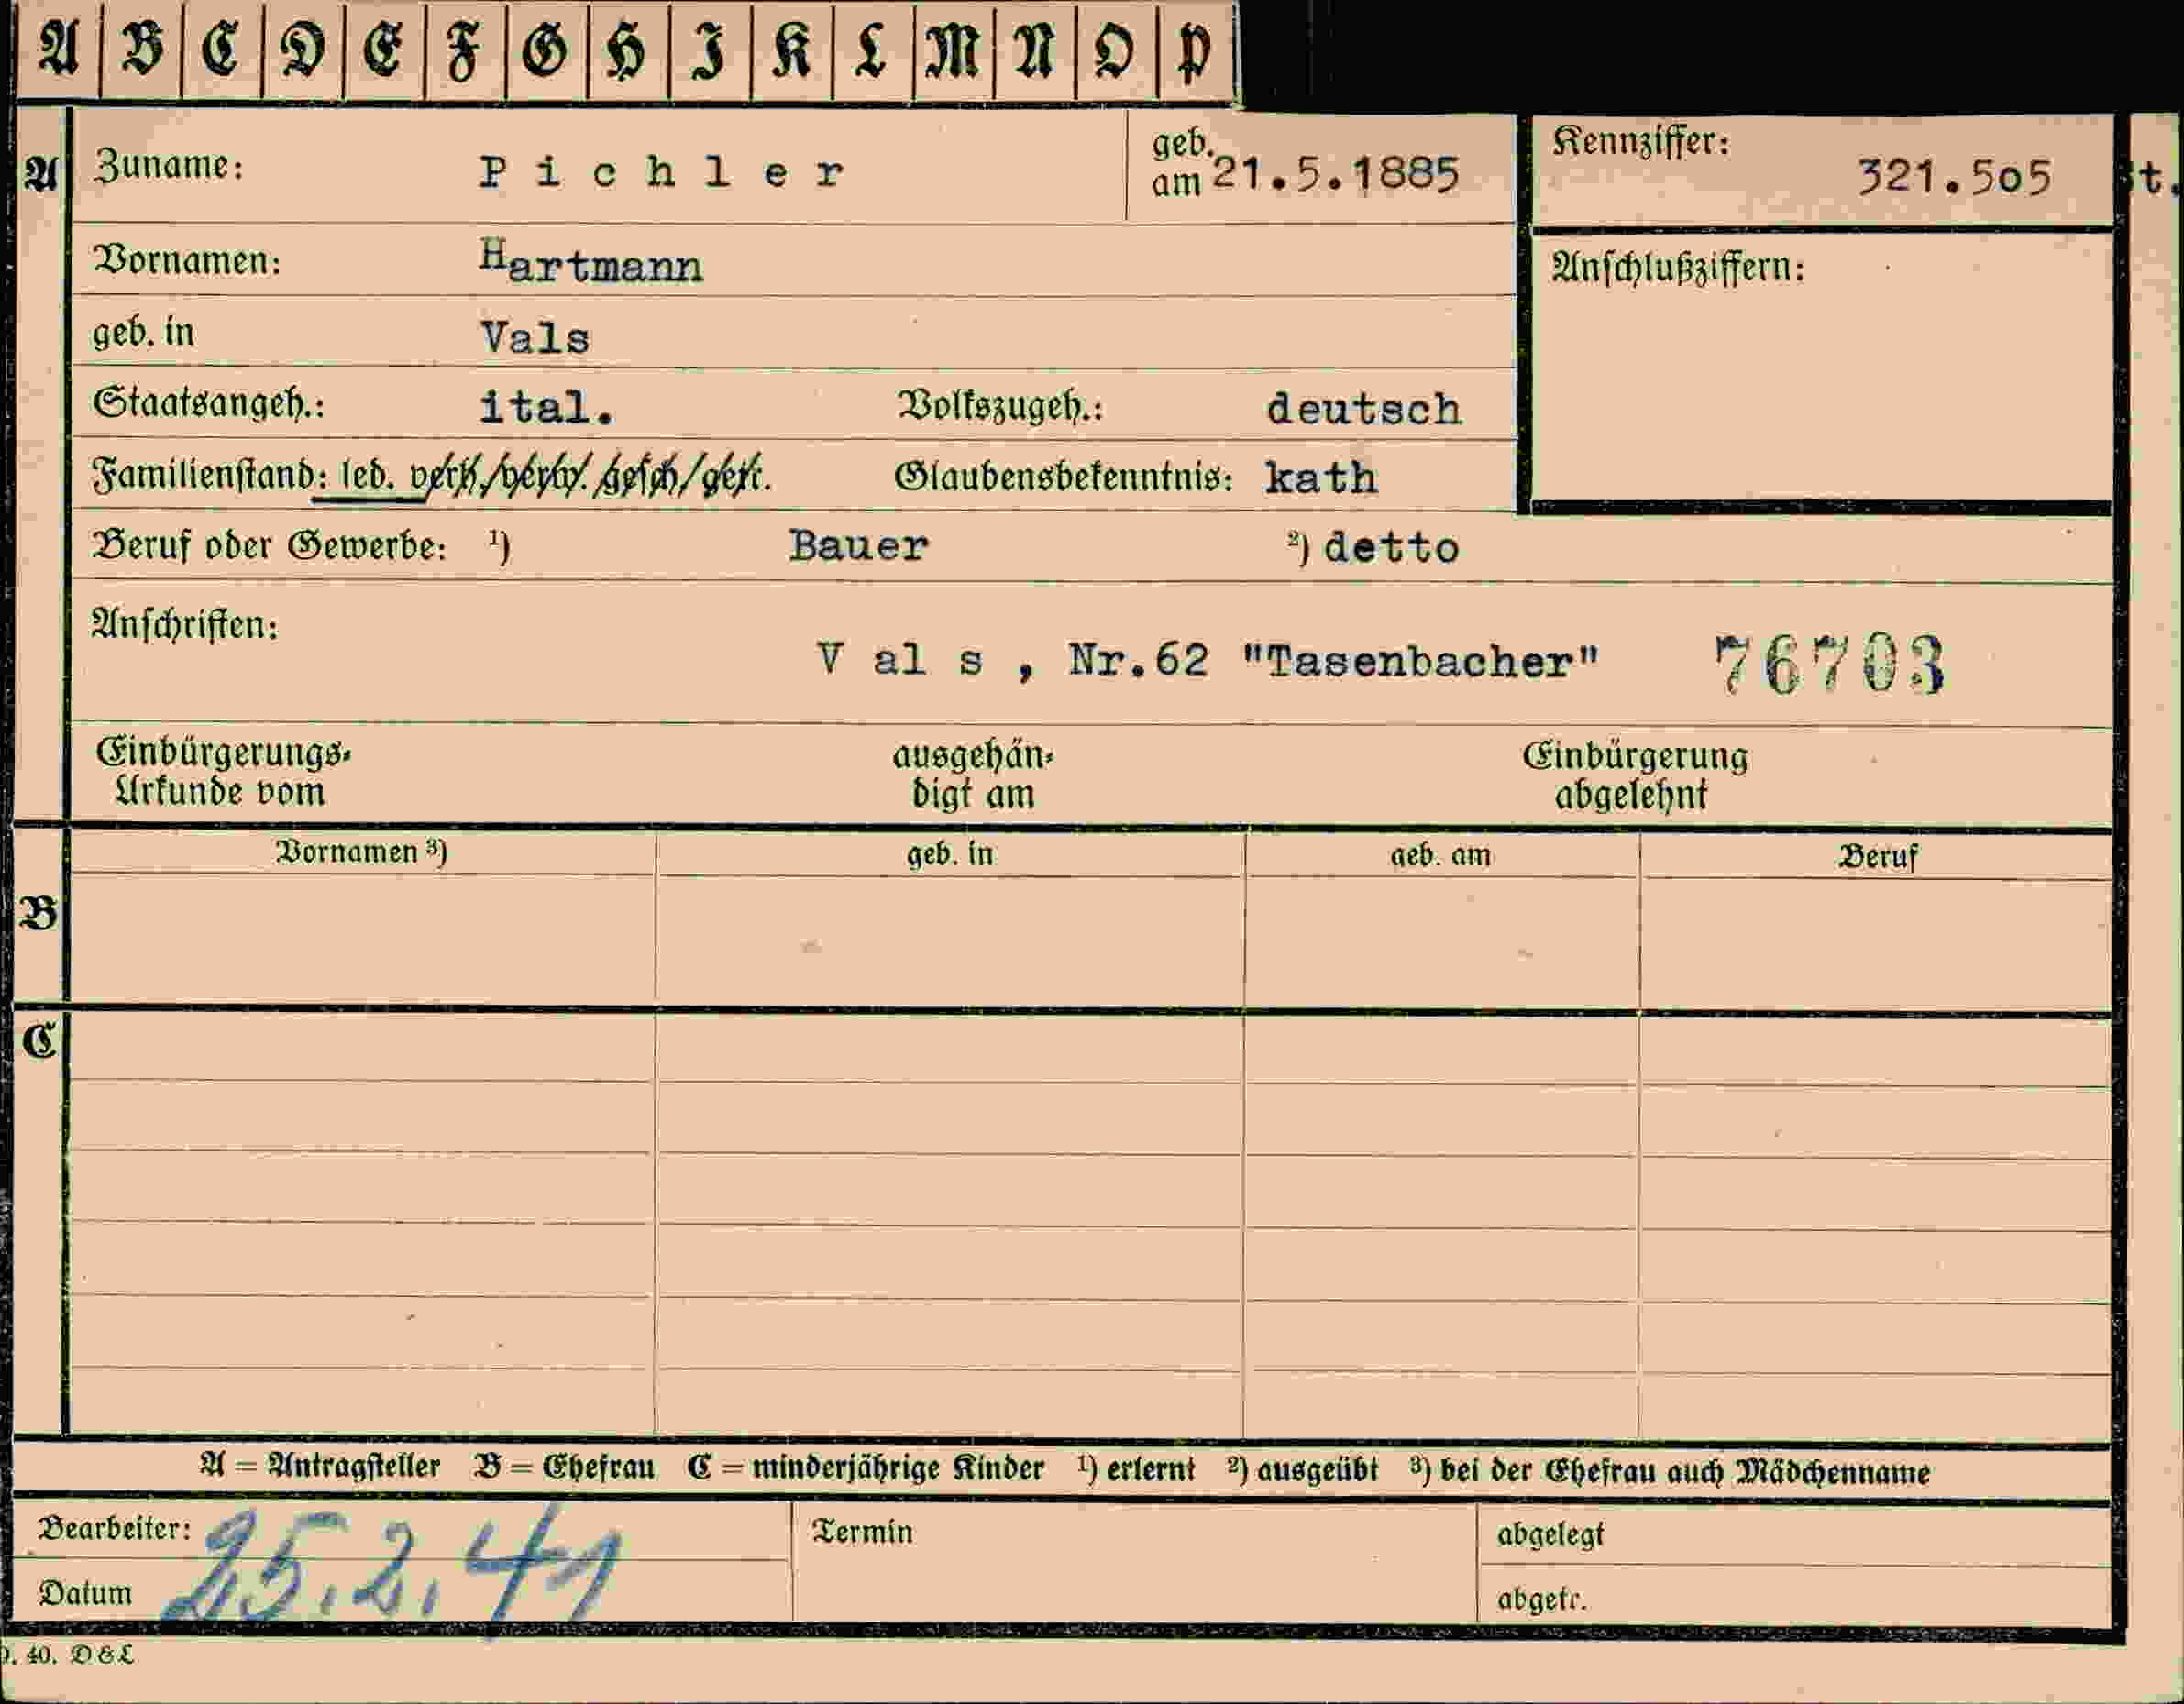 A B C D E F G H I K L M N O P
A Zuname: Pichler geb. am 21.5.1885 Kennziffer: 321.5o5 t.
Vornamen: Hartmann Anschlußziffern:
geb. in Vals
Staatsangeh.: ital. Volkszugeh.: deutsch
Familienstand: led. verh./verw. gesch/getr. Glaubensbekenntnis: kath
Beruf oder Gewerbe: ¹) Bauer ²) detto
Anschriften:
Vals, Nr.62 "Tasenbacher" 76703
Einbürgerungs- ausgehän- Einbürgerung
Urkunde vom digt am abgelehnt
Vornamen ³) geb. in geb. am Beruf
B
C
A = Antragsteller B = Ehefrau C = minderjährige Kinder ¹) erlernt ²) ausgeübt ³) bei der Ehefrau auch Mädchenname
Bearbeiter: Termin abgelegt
Datum 25.2.41 abgetr.
40. D & L